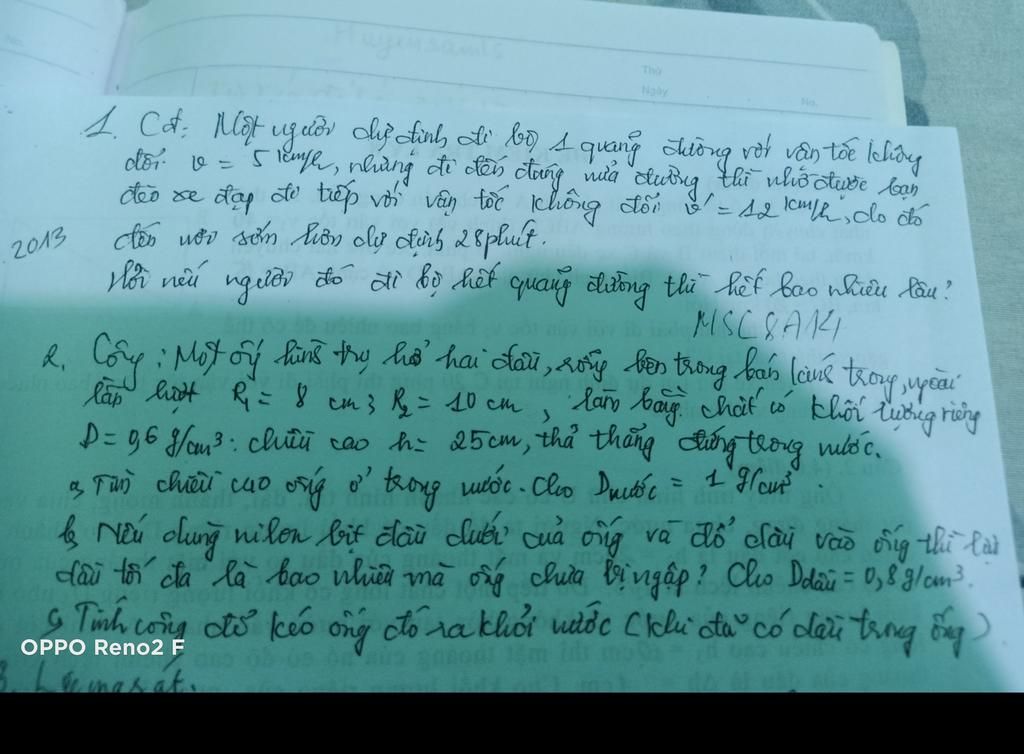 Thứ
Ngày
No.
1. Cđ: Một người dự định đi bộ 1 quãng đường với vận tốc không
đổi v = 5 km/h, nhưng đi đến đúng nửa đường thì nhờ được bạn
đèo xe đạp đi tiếp với vận tốc không đổi v' = 12 km/h, do đó
2013
đến nơi sớm hơn dự định 28 phút.
Hỏi nếu người đó đi bộ hết quãng đường thì hết bao nhiêu lâu?
2. Công: Một ống hình trụ hở hai đầu, rỗng bên trong bán kính trong, ngoài
lần lượt R1 = 8 cm; R2 = 10 cm, làm bằng chất có khối lượng riêng
D = 0,6 g/cm³. chiều cao h = 25cm, thả thẳng đứng trong nước.
a, Tìm chiều cao ống ở trong nước. Cho Dnước = 1 g/cm³.
b, Nếu dùng nilon bịt đầu dưới của ống và đổ dầu vào ống thì
dầu tối đa là bao nhiêu mà ống chưa bị ngập? Cho Ddầu = 0,8 g/cm³.
c, Tính công để kéo ống đó ra khỏi nước (khi đã có dầu trong ống)
OPPO Reno2 F